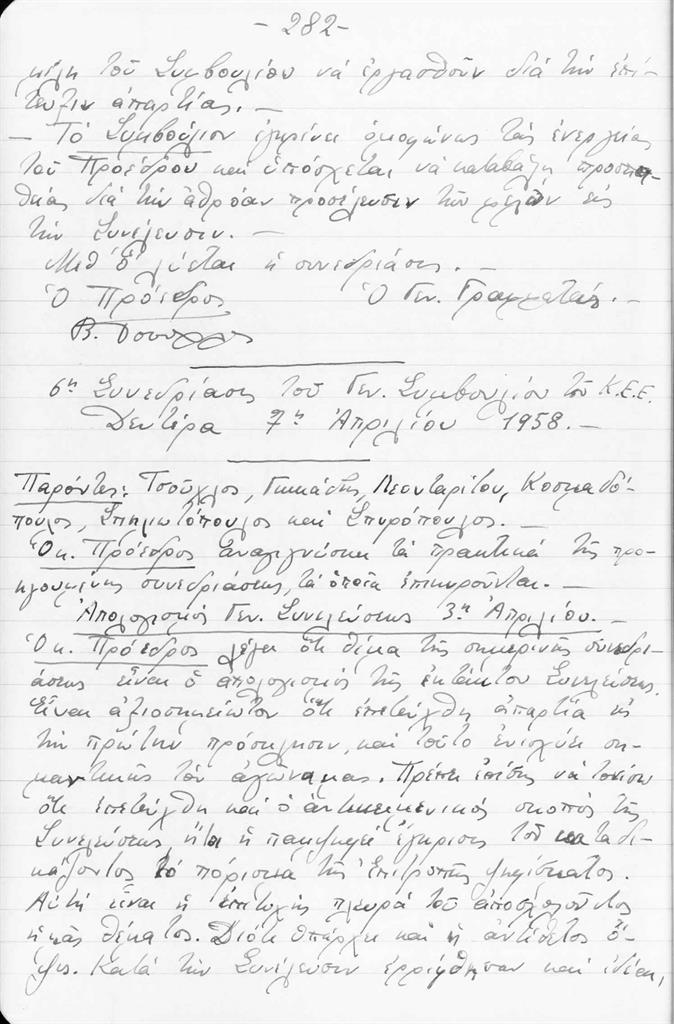 - 282 -
μέλη τοῦ Συμβουλίου νά ἐργασθοῦν διά τήν ἐπί-
τευξιν ἀπαρτίας. —
— Τό Συμβούλιον ἐγκρίνει ὁμοφώνως τάς ἐνεργείας
τοῦ Προέδρου καί ὑπόσχεται νά καταβάλη προσπα-
θείας διά τήν ἀθρόαν προσέλευσιν τῶν μελῶν εἰς
τήν Συνέλευσιν. —
Μεθ' ὅ λύεται ἡ συνεδρίασις. —
Ὁ Πρόεδρος Ὁ Γεν. Γραμματεύς. —
6η Συνεδρίασις τοῦ Γεν. Συμβουλίου τοῦ Κ.Ε.Ε.
Δευτέρα 7η Ἀπριλίου 1958. —
Παρόντες: Τσοῦχλος, Γιμιάδης, Λεονταρίτου, Κοσμαδό-
πουλος, Σπηλιωτόπουλος καί Σπυρόπουλος. —
Ὁ κ. Πρόεδρος ἀναγιγνώσκει τά πρακτικά τῆς προ-
ηγουμένης συνεδριάσεως, τά ὁποῖα ἐπικυροῦνται. —
Ἀπολογισμός Γεν. Συνελεύσεως 3ης Ἀπριλίου. —
Ὁ κ. Πρόεδρος λέγει ὅτι θέμα τῆς σημερινῆς συνεδρι-
άσεως εἶναι ὁ ἀπολογισμός τῆς ἐκτάκτου Συνελεύσεως.
Εἶναι ἀξιοσημείωτον ὅτι ἐπετεύχθη ἀπαρτία μέ
τήν πρώτην πρόσκλησιν, καί τοῦτο ἐνισχύει ση-
μαντικῶς τόν ἀγῶνα μας. Πρέπει ἐπίσης νά τονίσω
ὅτι ἐπετεύχθη καί ὁ ἀντικειμενικός σκοπός τῆς
Συνελεύσεως, ἤτοι ἡ παμψηφεί ἔγκρισις τοῦ καταδι-
κάζοντος τό πόρισμα τῆς Ἐπιτροπῆς ψηφίσματος.
Αὐτή εἶναι ἡ ἐπιτυχής πλευρά τοῦ ἀπασχολοῦντος
ἡμᾶς θέματος. Διότι ὑπάρχει καί ἡ ἀντίθετος ὄ-
ψις. Κατά τήν Συνέλευσιν ἐρρίφθησαν καί ἰδέαι,